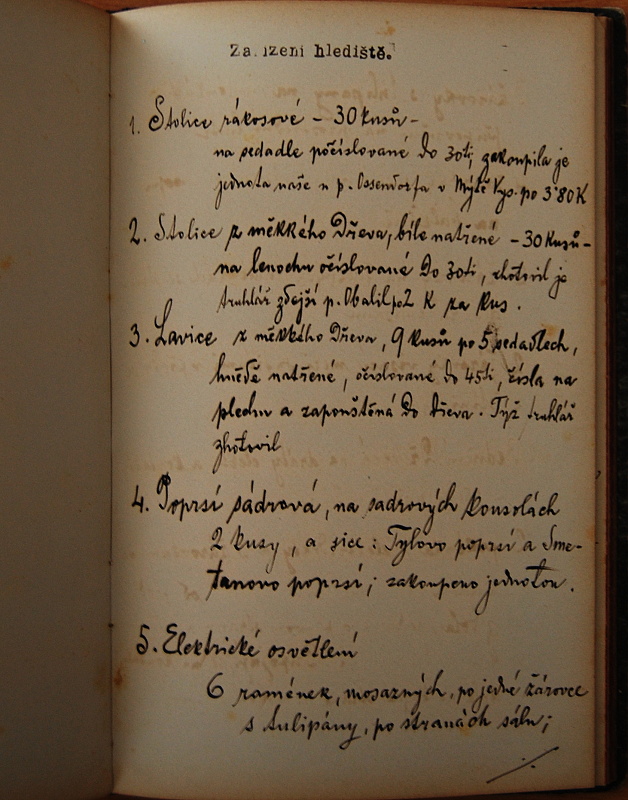 Zařízení hlediště.
1. Stolice rákosové - 30 kusů -
na sedadle počíslované do 30ti, zakoupila je
jednota naše u p. Ossendorfa v Mýtě Vys. po 3·80 K
2. Stolice z měkkého Dřeva, bíle natřené - 30 kusů -
na lenochu očíslované Do 30ti, zhotovil je
truhlář zdejší p. Obalil po 2 K za kus.
3. Lavice z měkkého Dřeva, 9 kusů po 5 sedadlech,
hnědě natřené, očíslované do 45ti, čísla na
plechu a zapouštěná Do Dřeva. Týž truhlář
zhotovil
4. Poprsí sádrová, na sadrových konsolách
2 kusy, a sice: Tylovo poprsí a Sme-
tanovo poprsí; zakoupeno jednotou.
5. Elektrické osvětlení
6 ramének, mosazných, po jedné žárovce
s tulipány, po stranách sálu;